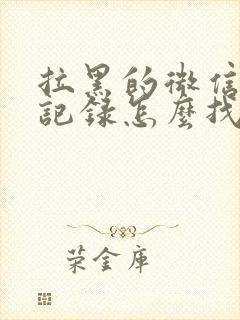 拉黑的微信
記錄怎麼找
荣金庫